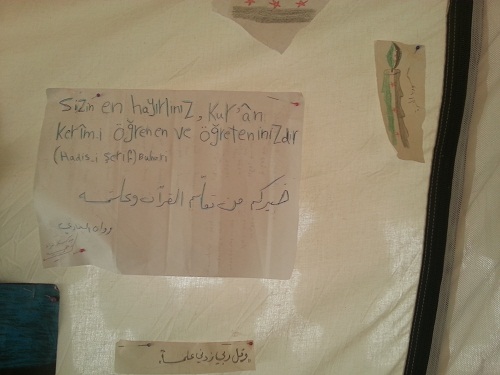 Sizin en hayırlınız, Kur'ân
kerîm.i öğrenen ve öğreteninizdir
(Hadis.i Şerif) Buhari
خيركم من تعلّم القرآن وعلّمه
رواه البخاري
وقل ربي زدني علماً.